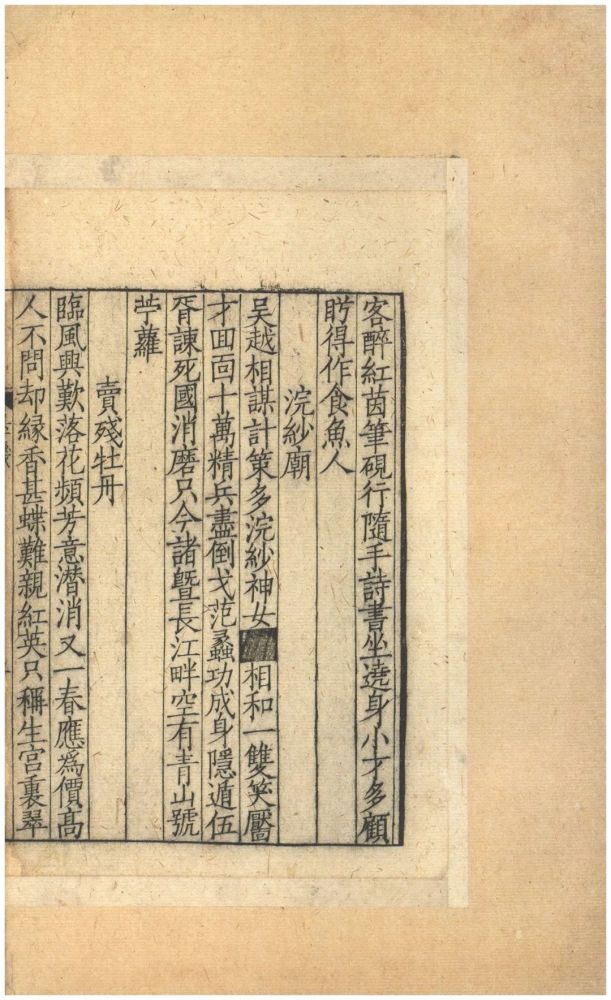 客醉紅茵筆硯行隨手詩書坐遶身小才多顧
眄得作食魚人
浣紗廟
吳越相謀計策多浣紗神女相和一雙笑靨
才回面十萬精兵盡倒戈范蠡功成身隱遁伍
胥諫死國消磨只今諸暨長江畔空有青山號
苧蘿
賣殘牡丹
臨風興歎落花頻芳意潛消又一春應爲價高
人不問却緣香甚蝶難親紅英只稱生宮裏翠